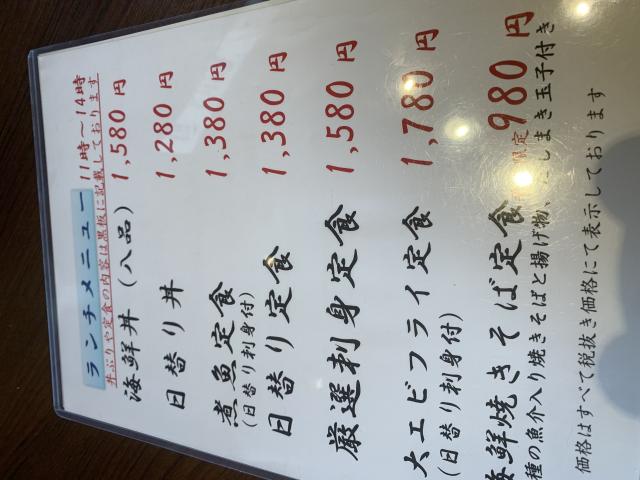 ランチメニュー 11時～14時
丼ぶりや定食の内容は黒板に記載しております
海鮮丼(八品) 1,580円
日替り丼 1,280円
煮魚定食 1,380円
(日替り刺身付)
日替り定食 1,380円
厳選刺身定食 1,580円
大エビフライ定食 1,780円
(日替り刺身付)
海鮮焼きそば定食 限定 980円
種の魚介入り焼きそばと揚げ物、だしまき玉子付き
価格はすべて税抜き価格にて表示しております